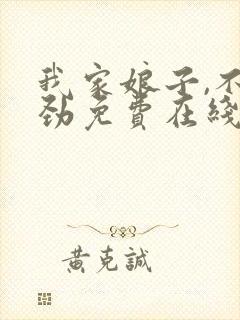 我家娘子,不
劲免費在綫
黃克誠